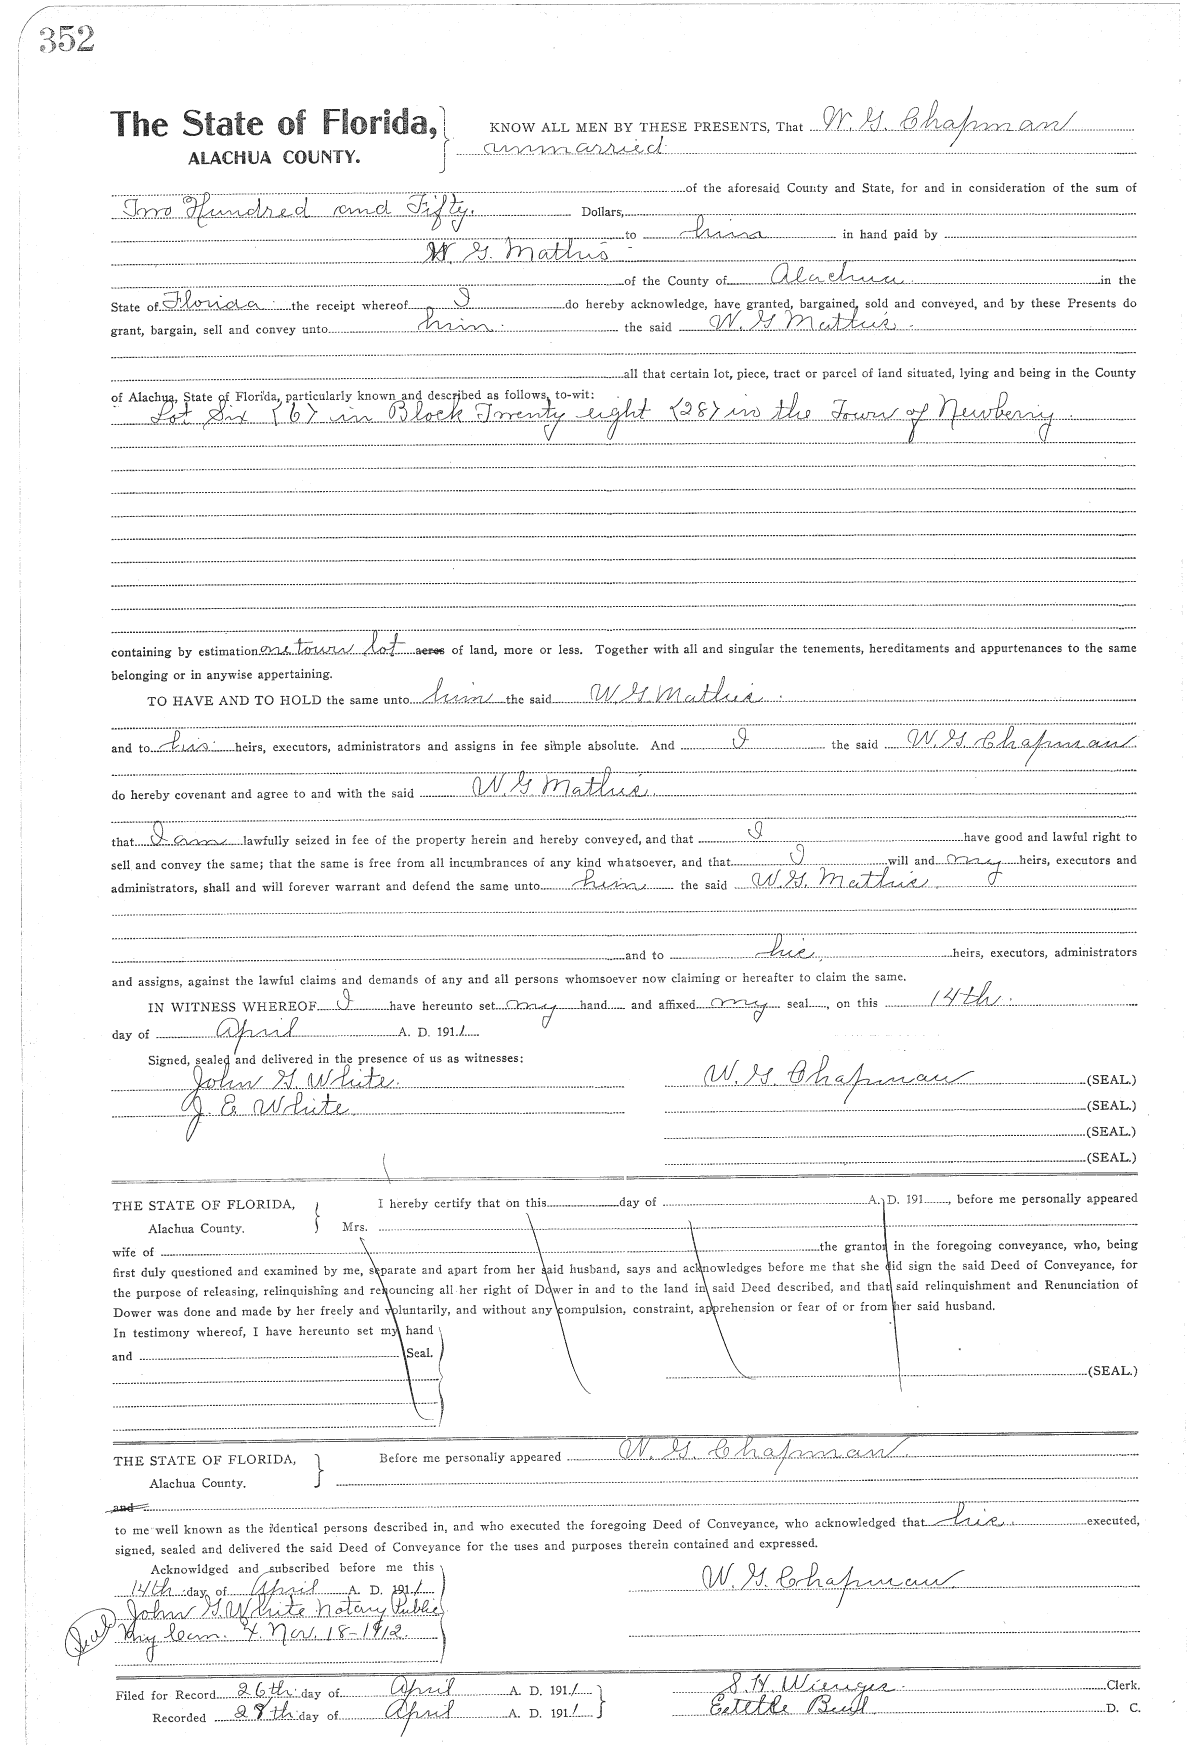 352
The State of Florida, KNOW ALL MEN BY THESE PRESENTS, That W. G. Chapman
ALACHUA COUNTY. unmarried
of the aforesaid County and State, for and in consideration of the sum of
Two Hundred and Fifty. Dollars,
to him in hand paid by
W. G. Mathis
of the County of Alachua in the
State of Florida the receipt whereof I do hereby acknowledge, have granted, bargained, sold and conveyed, and by these Presents do
grant, bargain, sell and convey unto him the said W. G Mathis
all that certain lot, piece, tract or parcel of land situated, lying and being in the County
of Alachua, State of Florida, particularly known and described as follows, to-wit:
Lot Six {6} in Block Twenty eight {28} in the Town of Newberry
containing by estimation one town lot acres of land, more or less. Together with all and singular the tenements, hereditaments and appurtenances to the same
belonging or in anywise appertaining.
TO HAVE AND TO HOLD the same unto him the said W. G. Mathis
and to his heirs, executors, administrators and assigns in fee simple absolute. And I the said W. G. Chapman
do hereby covenant and agree to and with the said W. G Mathis
that I am lawfully seized in fee of the property herein and hereby conveyed, and that I have good and lawful right to
sell and convey the same; that the same is free from all incumbrances of any kind whatsoever, and that I will and my heirs, executors and
administrators, shall and will forever warrant and defend the same unto him the said W. G. Mathis
and to his heirs, executors, administrators
and assigns, against the lawful claims and demands of any and all persons whomsoever now claiming or hereafter to claim the same.
IN WITNESS WHEREOF I have hereunto set my hand and affixed my seal, on this 14th
day of April A. D. 1911
Signed, sealed and delivered in the presence of us as witnesses:
John G. White. W. G. Chapman (SEAL.)
J. E White (SEAL.)
(SEAL.)
(SEAL.)
THE STATE OF FLORIDA, I hereby certify that on this day of A. D. 191 , before me personally appeared
Alachua County. Mrs.
wife of the grantor in the foregoing conveyance, who, being
first duly questioned and examined by me, separate and apart from her said husband, says and acknowledges before me that she did sign the said Deed of Conveyance, for
the purpose of releasing, relinquishing and renouncing all her right of Dower in and to the land in said Deed described, and that said relinquishment and Renunciation of
Dower was done and made by her freely and voluntarily, and without any compulsion, constraint, apprehension or fear of or from her said husband.
In testimony whereof, I have hereunto set my hand
and Seal.
(SEAL.)
THE STATE OF FLORIDA, Before me personally appeared W. G. Chapman
Alachua County.
and
to me well known as the identical persons described in, and who executed the foregoing Deed of Conveyance, who acknowledged that his executed,
signed, sealed and delivered the said Deed of Conveyance for the uses and purposes therein contained and expressed.
Acknowldged and subscribed before me this
14th day of April A. D. 1911 W. G. Chapman
John G. White Notary Public
(Seal) My Com. X. Nov. 18-1912.
Filed for Record 26th day of April A. D. 1911 S. H. Wienges Clerk.
Recorded 28th day of April A. D. 1911 D. C.